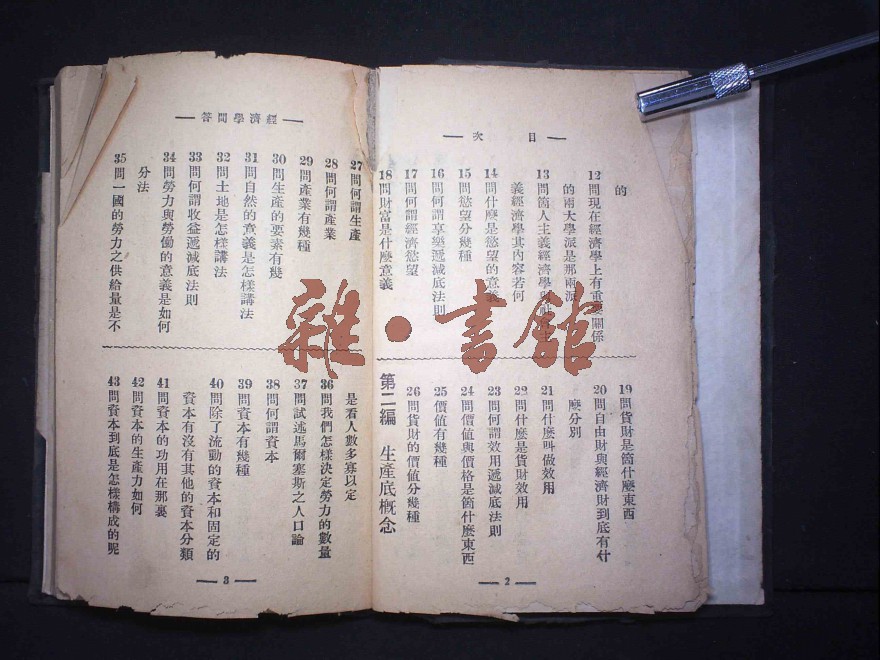 目次
的
12問現在經濟學上有重要關係
的兩大學派是那兩派
13問箇人主義經濟學與
義經濟學其內容若何
14問什麼是慾望的意義
15問慾望分幾種
16問何謂享樂遞減底法則
17問何謂經濟慾望
18問財富是什麼意義
19問貨財是箇什麼東西
20問自由財與經濟財到底有什
麼分別
21問什麼叫做效用
22問什麼是貨財效用
23問何謂效用遞減底法則
24問價值與價格是箇什麼東西
25價值有幾種
26問貨財的價值分幾種
第二編 生產底概念
2
經濟學問答
27問何謂生產
28問何謂產業
29問產業有幾種
30問生產的要素有幾
31問自然的意義是怎樣講法
32問土地是怎樣講法
33問何謂收益遞減底法則
34問勞力與勞働的意義是如何
分法
35問一國的勞力之供給量是不
是看人數多寡以定
36問我們怎樣決定勞力的數量
37問試述馬爾塞斯之人口論
38問何謂資本
39問資本有幾種
40問除了流動的資本和固定的
資本有沒有其他的資本分類
41問資本的功用在那裏
42問資本的生產力如何
43問資本到底是怎樣構成的呢
3
雜·書館